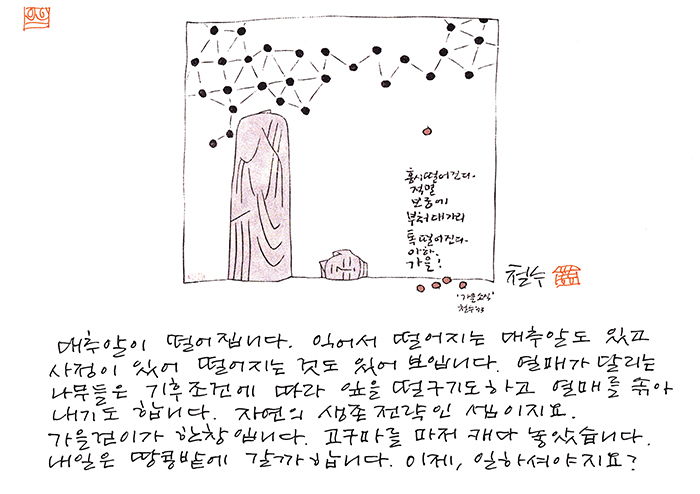 홍시 떨어진다.
적멸
보궁에
부처 대가리
툭 떨어진다.
아하,
가을!
'가을 소식'
철수 93
철수
대추알이 떨어집니다. 익어서 떨어지는 대추알도 있고
사정이 있어 떨어지는 것도 있어 보입니다. 열매가 달리는
나무들은 기후조건에 따라 잎을 떨구기도하고 열매를 솎아
내기도 합니다. 자연의 생존전략인 셈이지요.
가을걷이가 한창입니다. 고구마를 마저 캐다 놓았습니다.
내일은 땅콩밭에 갈까합니다. 이제, 일하셔야지요?